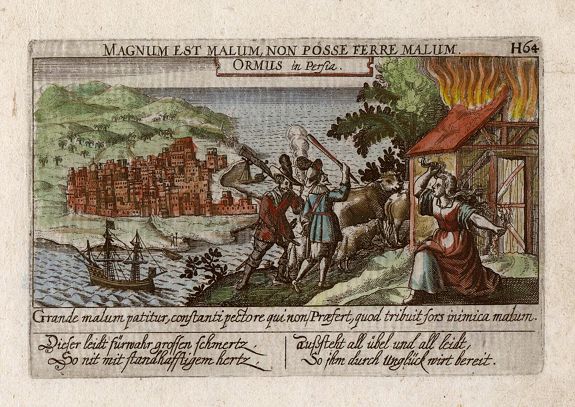 MAGNUM EST MALUM, NON POSSE FERRE MALUM.
H64
ORMUS in Persia.
Grande malum patitur, constanti pectore qui non / Præfert, quod tribuit sors inimica malum.
Dieser leidt fürwahr grossen schmertz.
So nit mit standhafftigem hertz
außsteht all übel und all leidt,
So ihm durch Unglück wirt bereit.